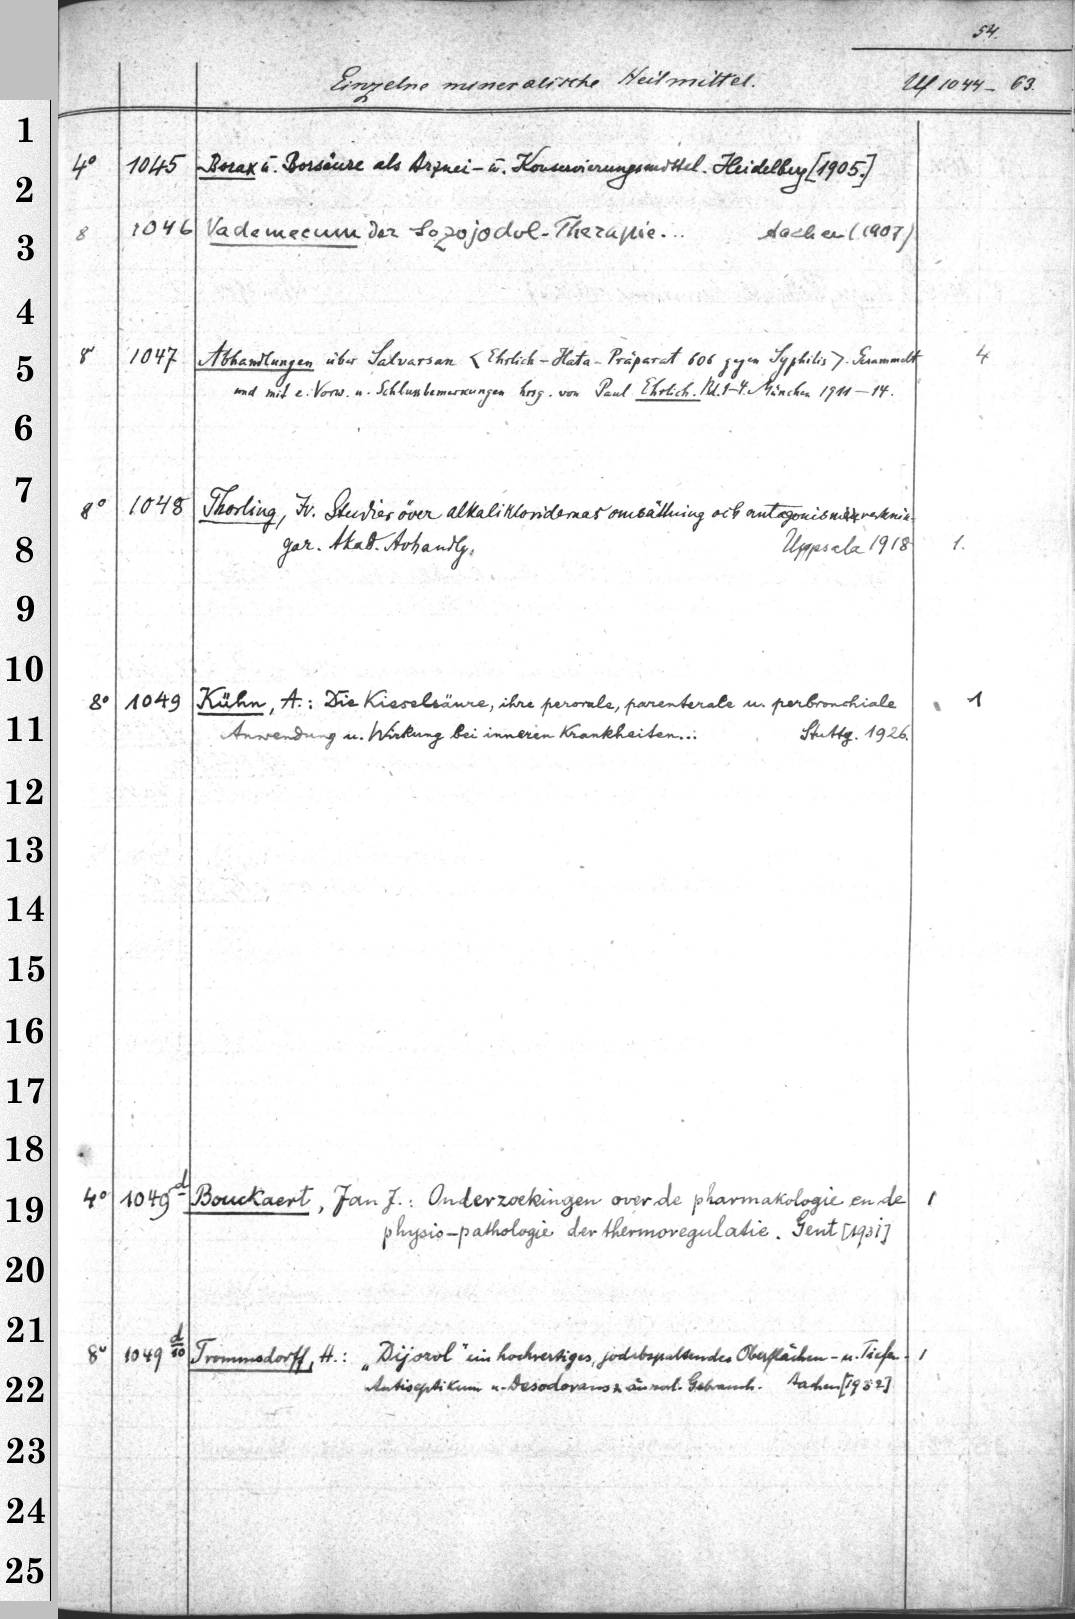 54.
Einzelne mineralische Heilmittel. 1044-63.
1
4° 1045 Borax u. Borsäure als Arznei- u. Konservierungsmittel. Heidelberg [1905.]
2
8 1046 Vademecum der Sozojodol-Therapie... Aachen (1907)
3
4
8° 1047 Abhandlungen über Salvarsan < Ehrlich-Hata-Präparat 606 gegen Syphilis >. Gesammelt 4
5
und mit e. Vorw. u. Schlussbemerkungen hrsg. von Paul Ehrlich. Bd. 1-4. München 1911-14.
6
7
8° 1048 Thorling, Iv. Studier över alkalikloridernas omsättning och antagonist. verknin-
8
gar. Akad. Avhandlg. Uppsala 1918 1.
9
10
8° 1049 Kühn, A.: Die Kieselsäure, ihre perorale, parenterale u. perbronchiale 1
11
Anwendung u. Wirkung bei inneren Krankheiten... Stuttg. 1926.
12
13
14
15
16
17
18
4° 1049 d Bouckaert, Jan J.: Onderzoekingen over de pharmakologie en de 1
19
physio-pathologie der thermoregulatie. Gent [1931]
20
21
8° 1049 d/10 Trommsdorff, H.: „Dijozol" ein hochwertiges, jodabspaltendes Oberflächen- u. Tiefen- 1
22
Antiseptikum u. Desodorans z. äusserl. Gebrauch. Aachen [1932]
23
24
25